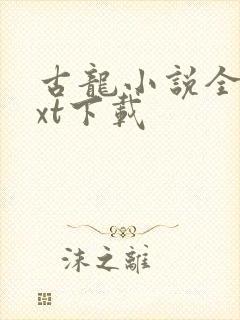 古龍小說全
xt下載
沫之離